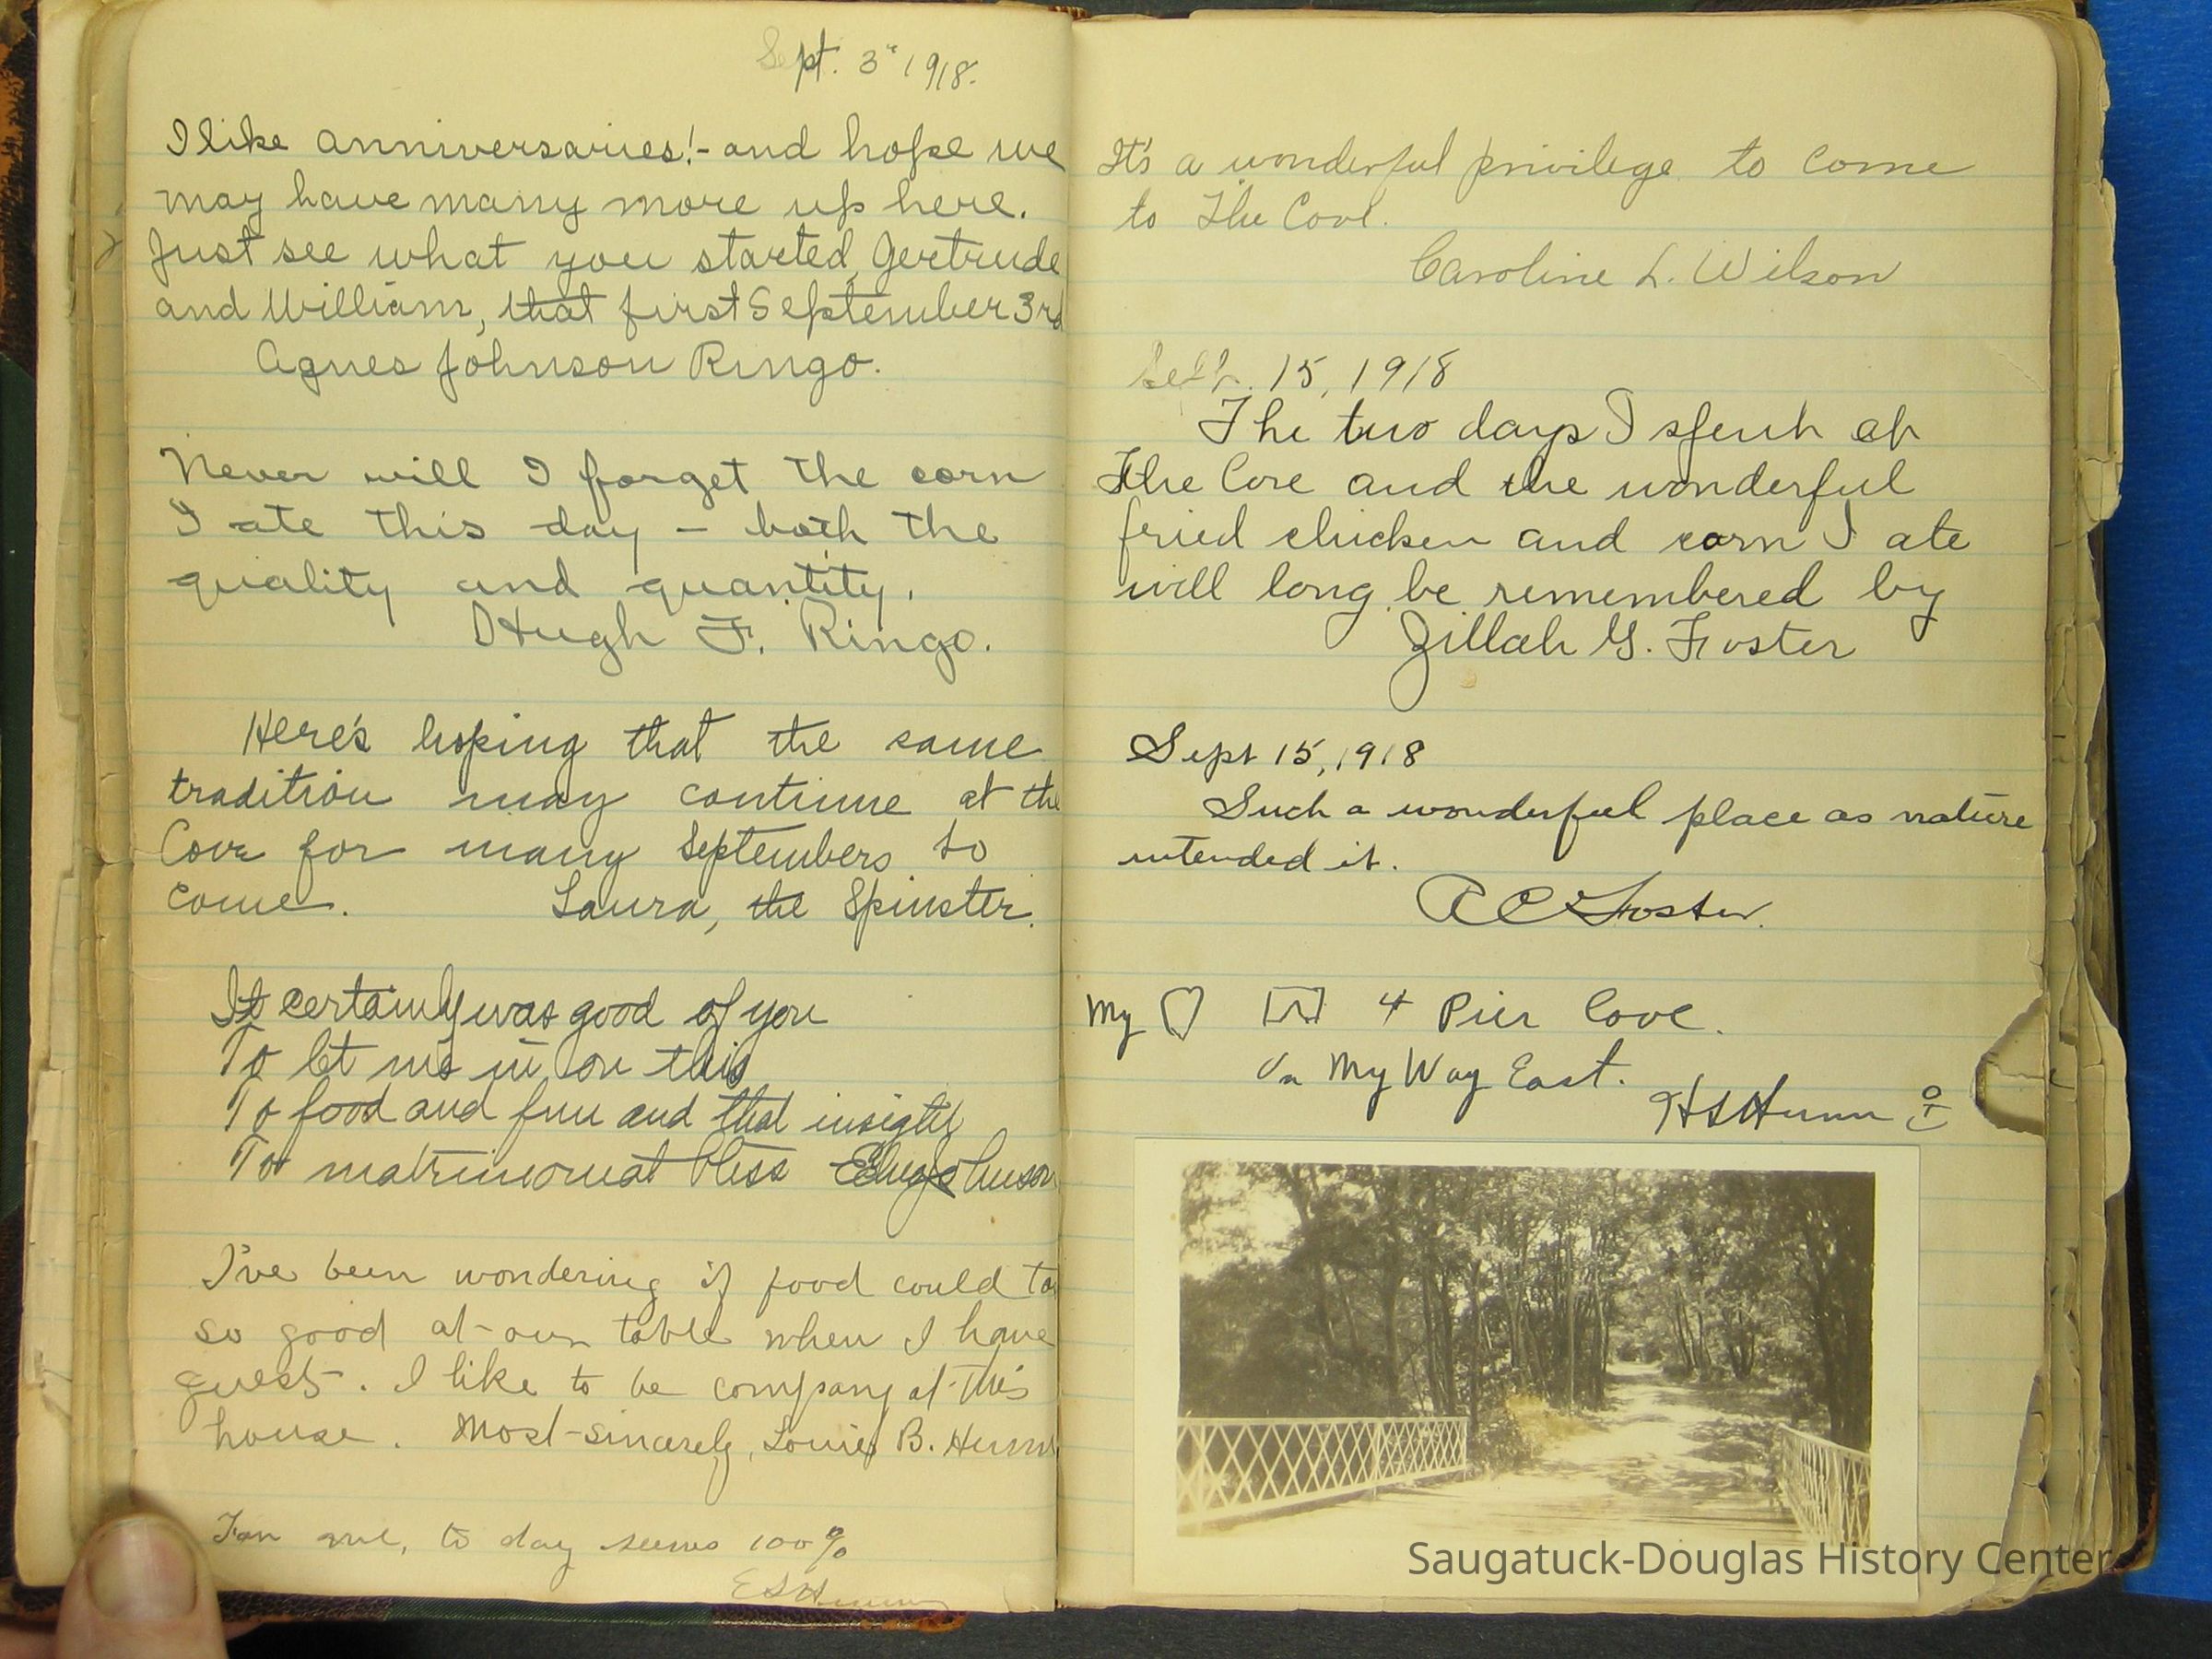 Sept. 3" 1918.
I like anniversaries! - and hope we
may have many more up here.
Just see what you started, Gertrude
and William, that first September 3rd
Agnes Johnson Ringo.
Never will I forget the corn
I ate this day – both the
quality and quantity.
Hugh F. Ringo.
Here's hoping that the same
tradition may continue at the
Cove for many Septembers to
come. Laura, the Spinster.
It certainly was good of you
To let us in on this
To food and fun and that insight
To matrimonial bliss Johnson
I've been wondering if food could
so good at our table when I have
guests. I like to be company at this
house. Most sincerely, B. Hunn
For me, to day seems 100%
It's a wonderful privilege to come
to The Cove.
Caroline L. Wilson
Sept. 15, 1918
The two days I spent at
The Cove and the wonderful
fried chicken and corn I ate
will long be remembered by
Zillah G. Foster
Sept 15, 1918
Such a wonderful place as nature
intended it.
R C Foster.
My 4 Pier Cove.
On My Way East.
H S Hunn
Saugatuck-Douglas History Center